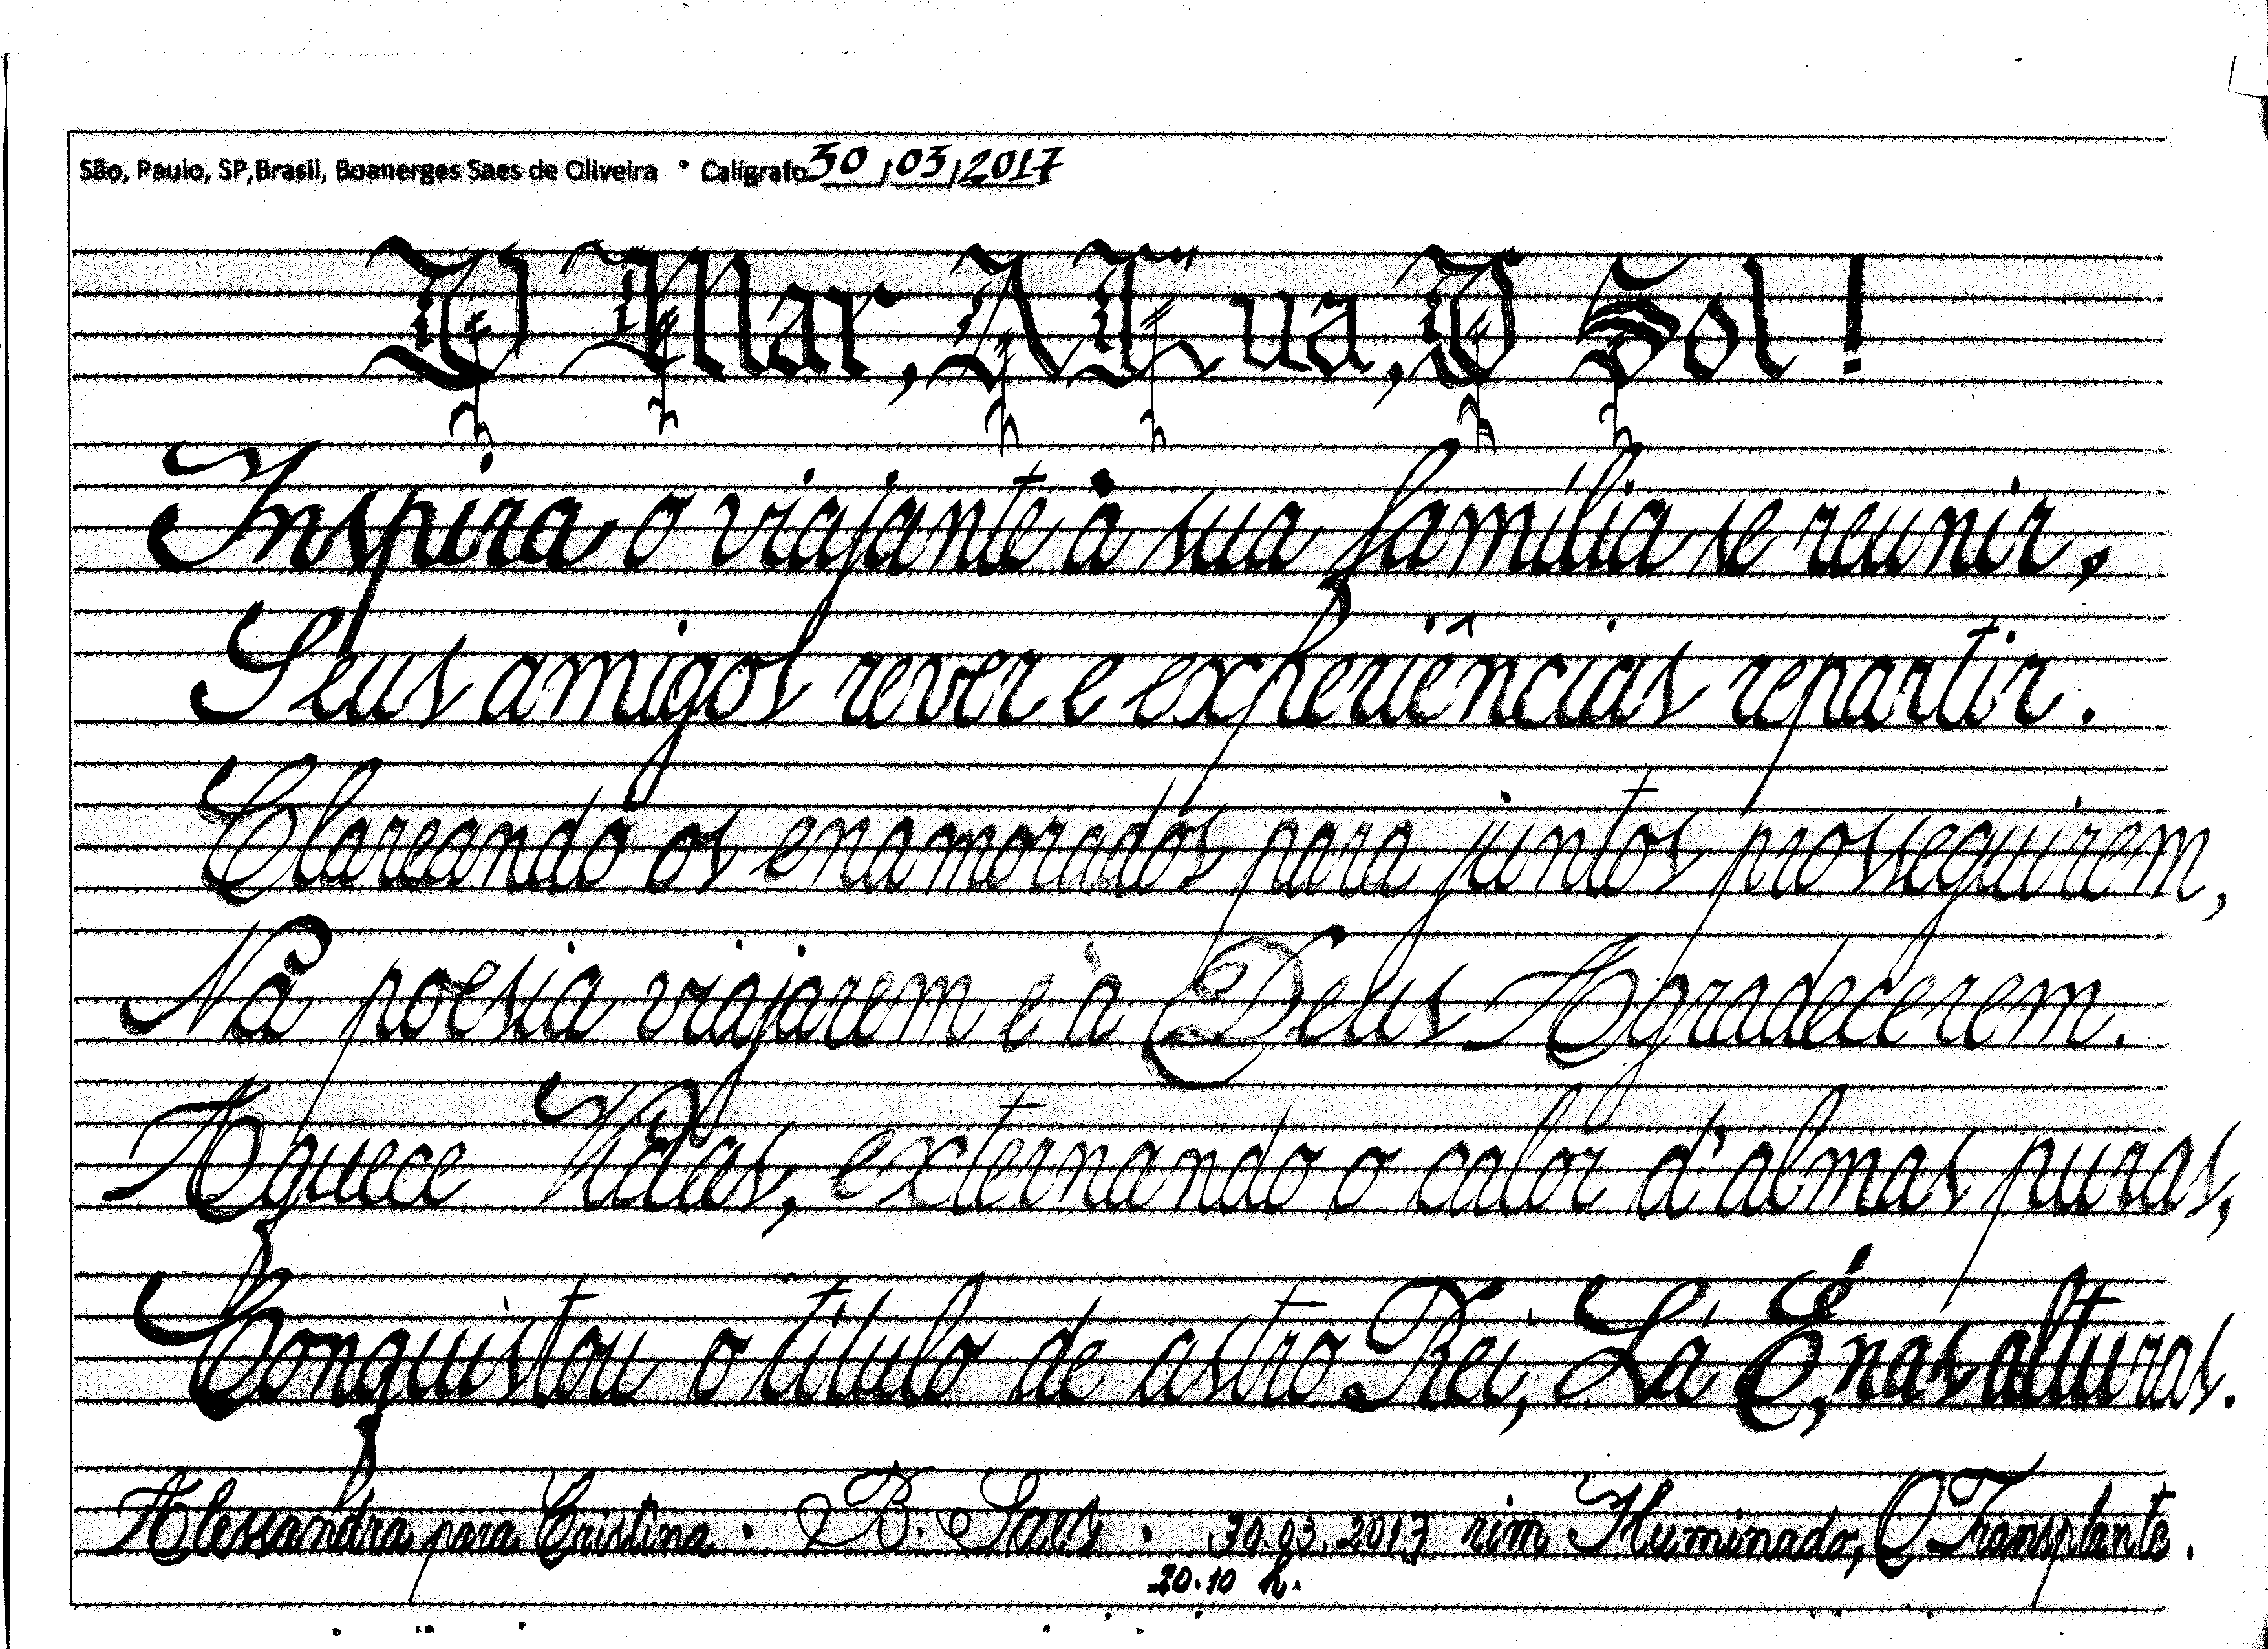 São, Paulo, SP,Brasil, Boanerges Saes de Oliveira • Calígrafo 30/03/2017
O Mar, A Lua, O Sol!
Inspira o viajante à sua família se reunir,
Seus amigos rever e experiências repartir.
Clareando os enamorados para juntos prosseguirem,
Na poesia viajarem e à Deus Agradecerem.
Aquece Vidas, externando o calor d'almas puras,
Conquistou o título de astro Rei, Lá É, nas alturas.
Alessandra para Cristina. B. Saes. 30.03.2017 rim Iluminado, O Transplante.
20.10 h.